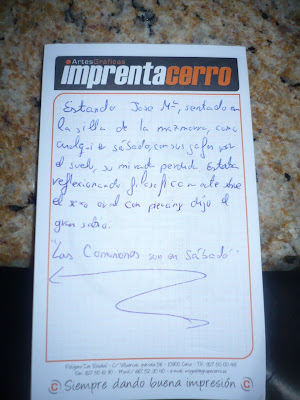 ArtesGráficas
imprentacerro
Estando Jose Mª, sentado en
la silla de la mazmorra, como
cualquier sábado, con sus gafas por
el suelo, su mirada perdida estaba
reflexionando filosóficamente sobre
el sexo oral con piercing dijo el
gran sabio.
"Las Comuniones son en Sábado"
Siempre dando buena impresión